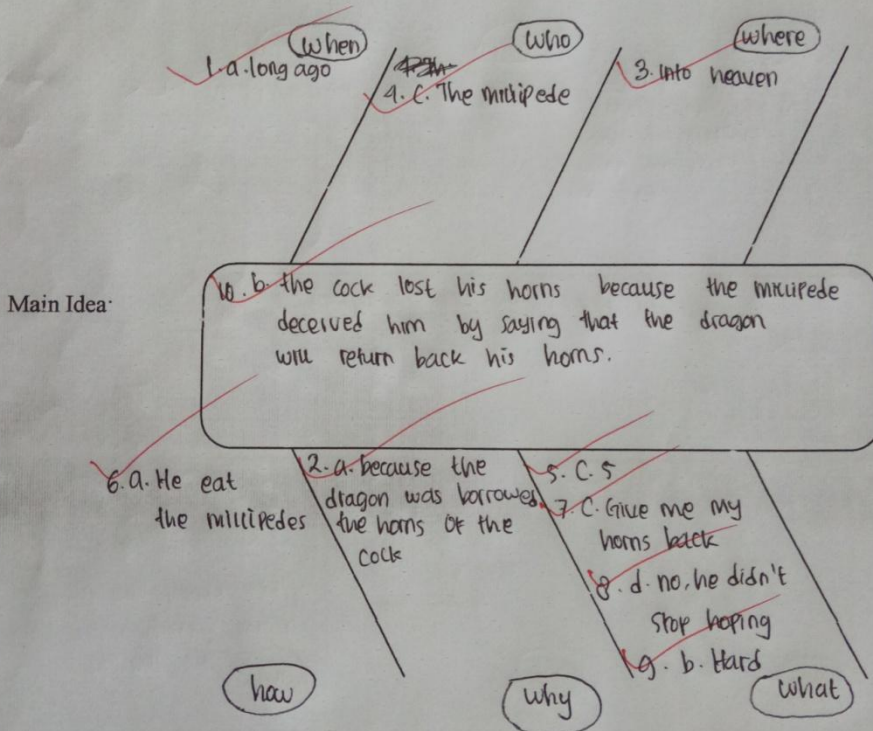 when
who
where
1. a. long ago
4. C. The millipede
3. into heaven
Main Idea
10. b. the cock lost his horns because the millipede
deceived him by saying that the dragon
will return back his horns.
6. a. He eat
the millipedes
2. a. because the
dragon was borrowed
the horns of the
cock
5. C. 5
7. C. Give me my
horns back
8. d. no, he didn't
stop hoping
9. b. Hard
how
why
what